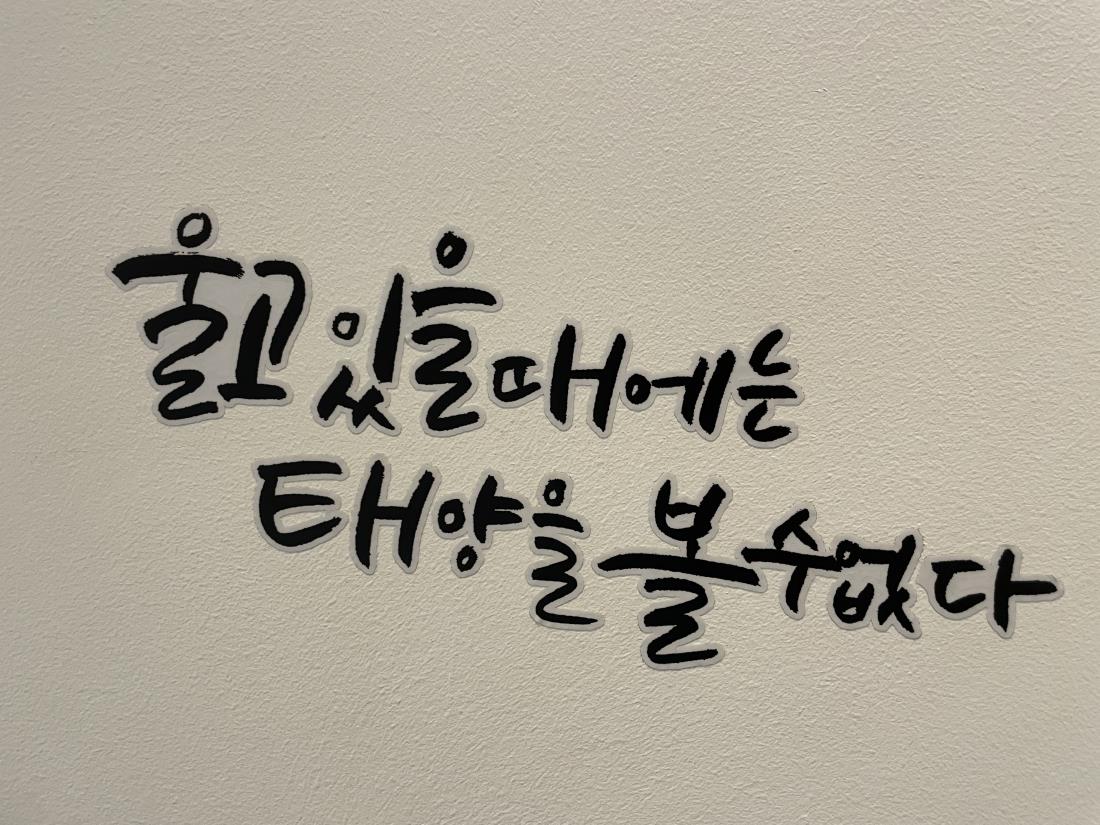 울고 있을 때에는
태양을 볼 수 없다